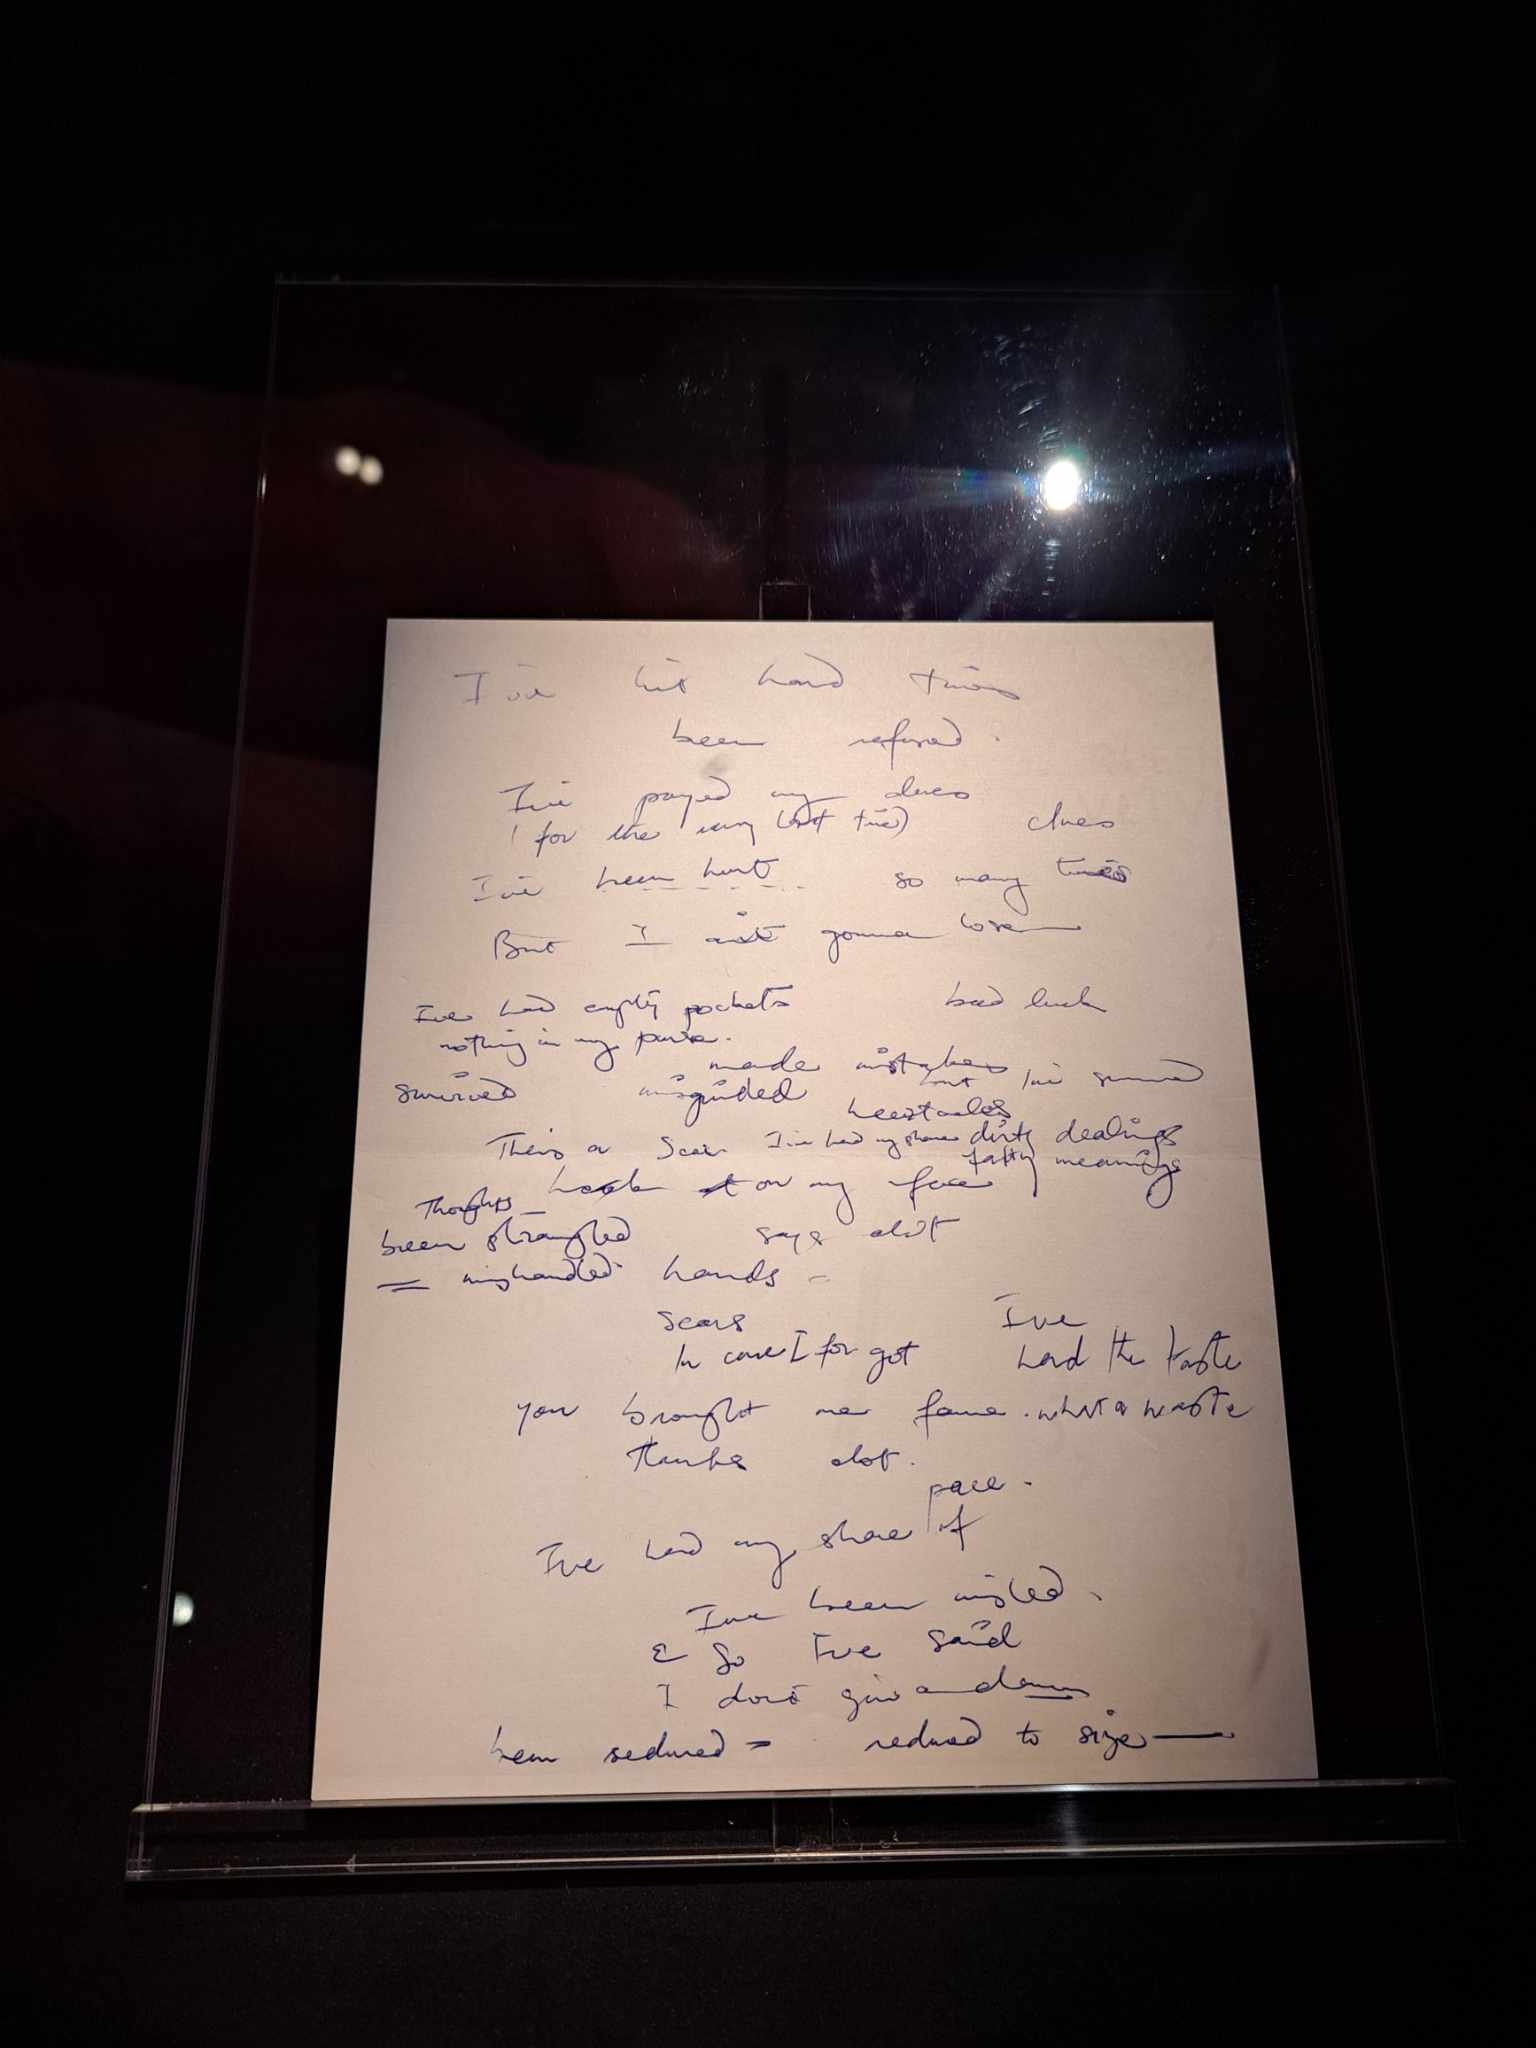 I've hit hard times
been refused.
I've payed my dues
(for the very last time) clues
I've been hurt so many times
But I ain't gonna lose
I've had empty pockets bad luck
nothing in my purse.
made mistakes
survived misguided but I've survived
There's a scar I've had my share dirty dealings
on my face meanings
Thoughts
been strangled says alot
mishandled hands
Scars I've
In case I forgot had the taste
you brought me fame. what a waste
thanks alot.
pace.
I've had my share of
I've been misled.
& so I've said
I don't give a damn
been seduced = reduced to size